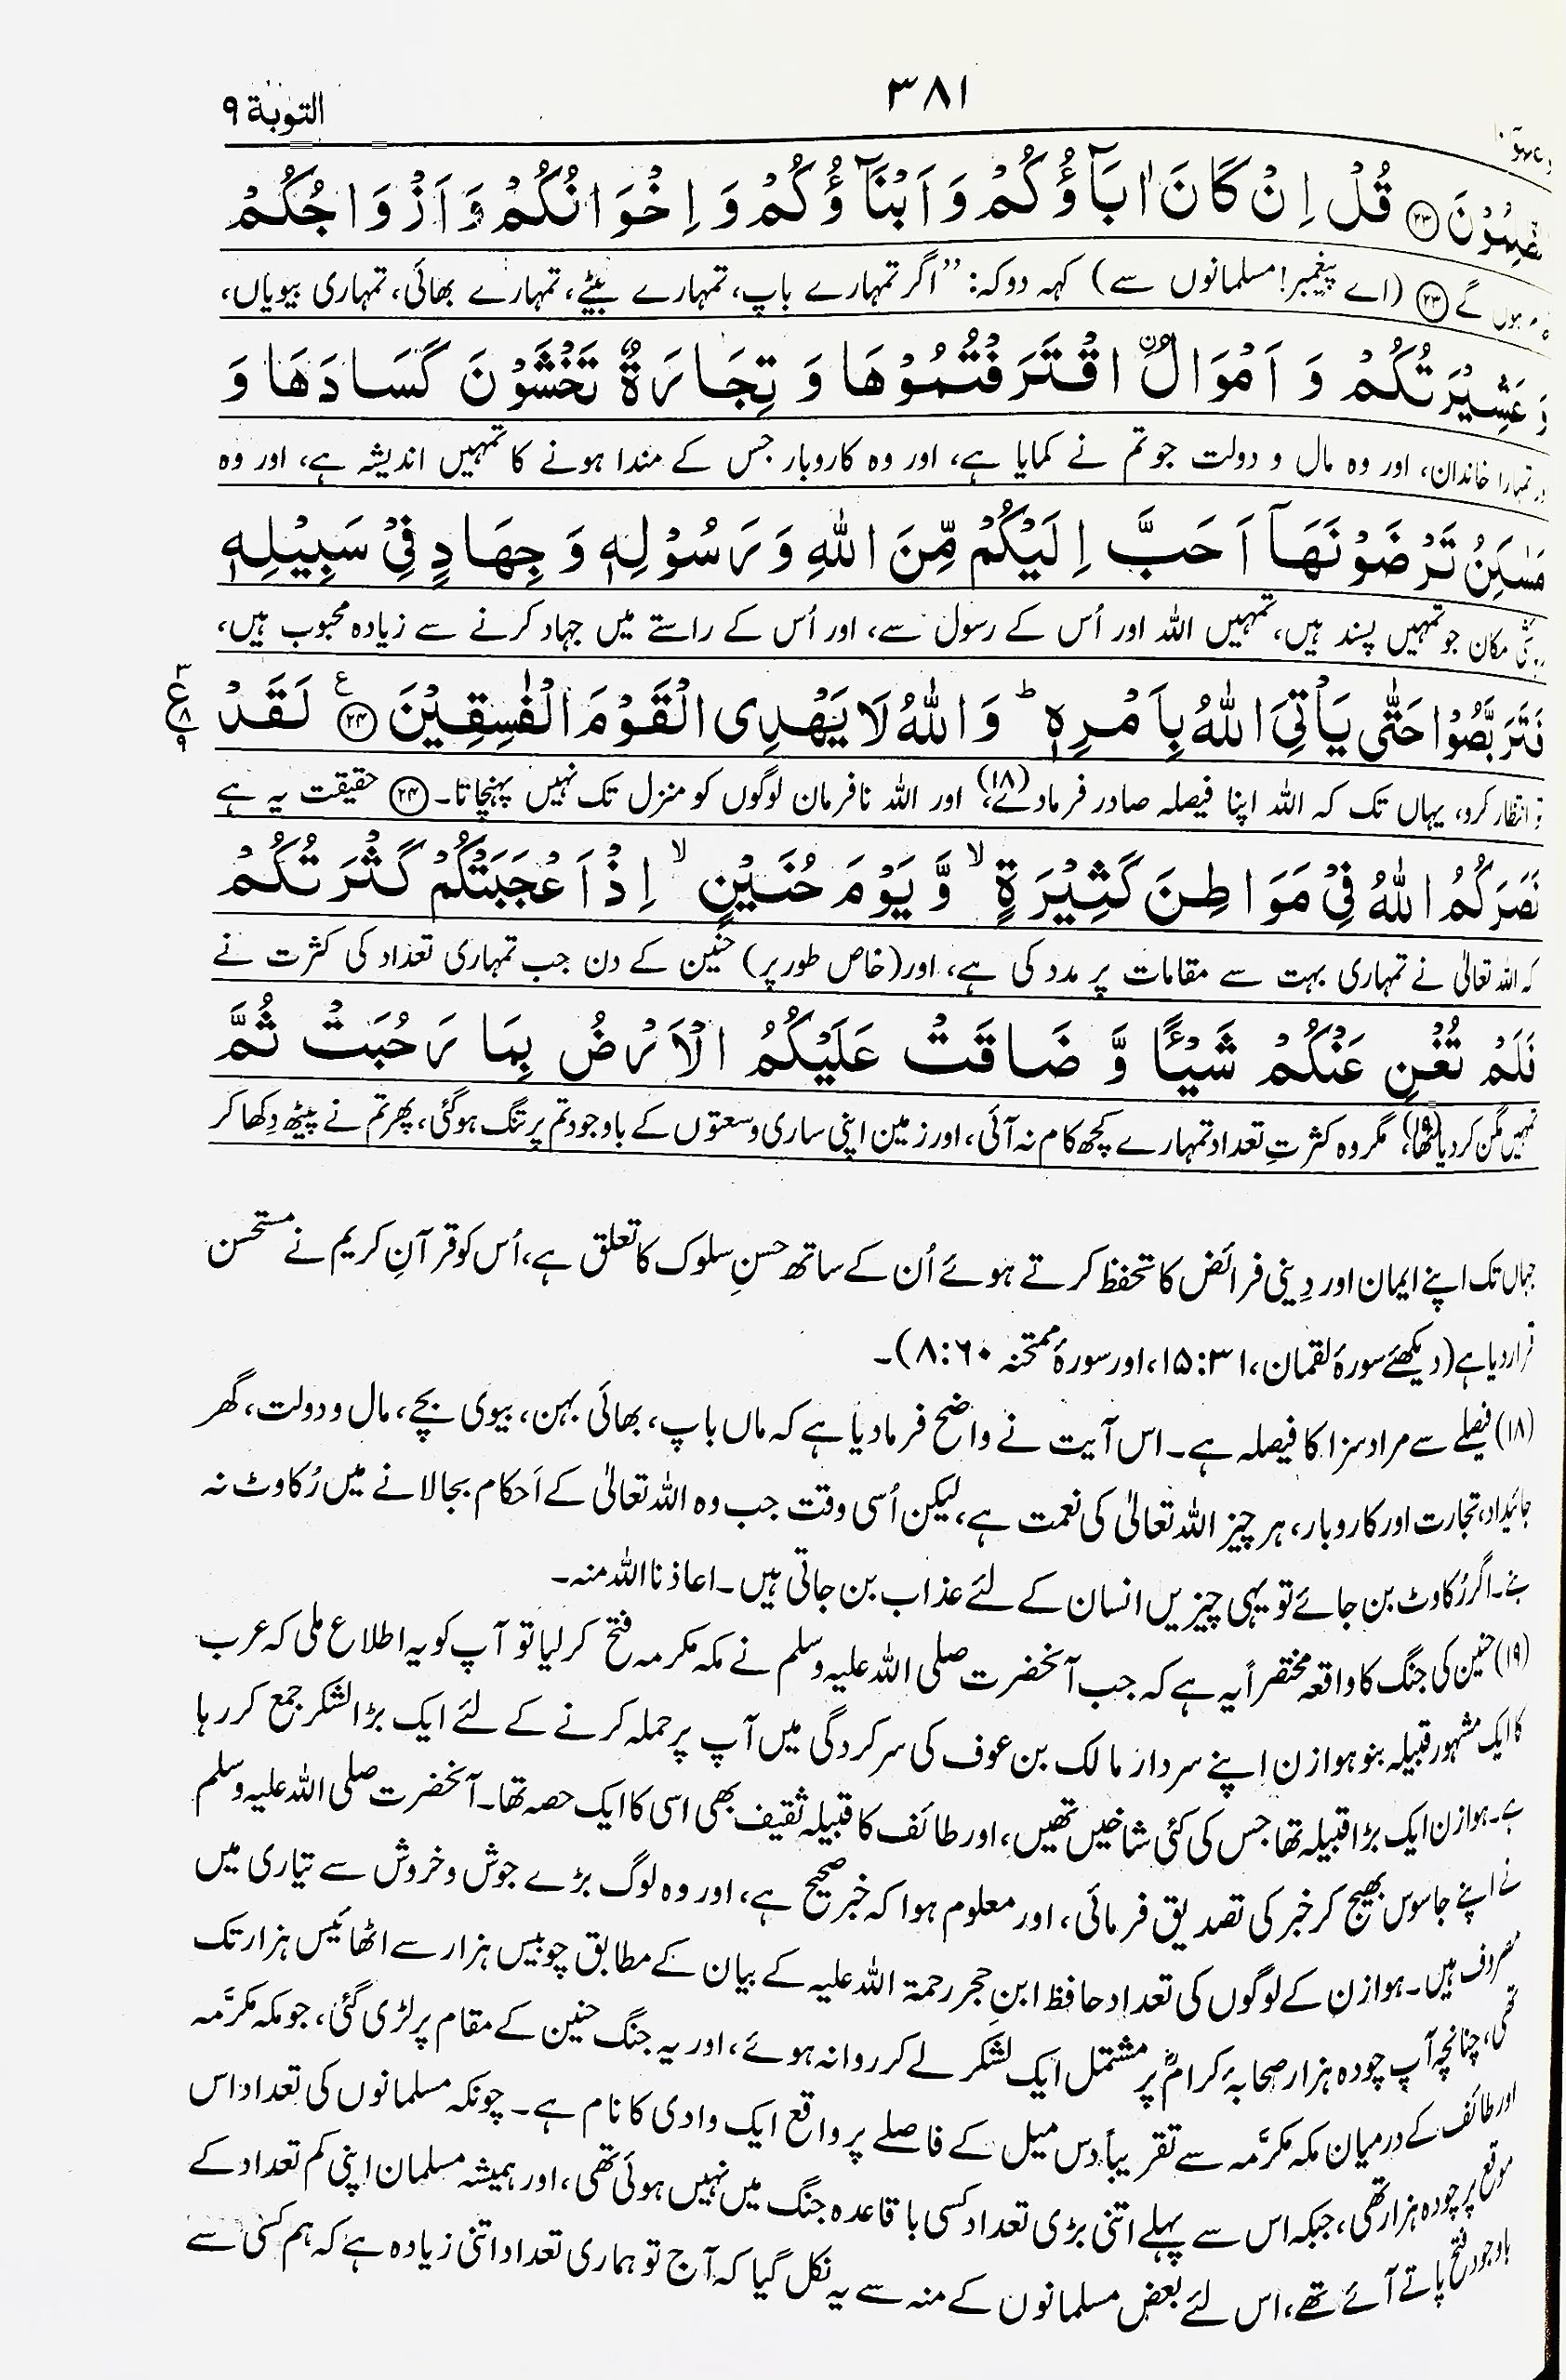 التوبة ۹
۳۸۱
الظّٰلِمُوْنَ ﴿۲۳﴾ قُلْ اِنْ كَانَ اٰبَآؤُكُمْ وَ اَبْنَآؤُكُمْ وَ اِخْوَانُكُمْ وَ اَزْوَاجُكُمْ
ہوں گے ﴿۲۳﴾ (اے پیغمبر! مسلمانوں سے) کہہ دو کہ: ’’اگر تمہارے باپ، تمہارے بیٹے، تمہارے بھائی، تمہاری بیویاں،
وَ عَشِيْرَتُكُمْ وَ اَمْوَالُۨ اقْتَرَفْتُمُوْهَا وَ تِجَارَةٌ تَخْشَوْنَ كَسَادَهَا وَ
اور تمہارا خاندان، اور وہ مال و دولت جو تم نے کمایا ہے، اور وہ کاروبار جس کے مندا ہونے کا تمہیں اندیشہ ہے، اور وہ
مَسٰكِنُ تَرْضَوْنَهَاۤ اَحَبَّ اِلَيْكُمْ مِّنَ اللّٰهِ وَ رَسُوْلِهٖ وَ جِهَادٍ فِيْ سَبِيْلِهٖ
مکان جو تمہیں پسند ہیں، تمہیں اللہ اور اُس کے رسول سے، اور اُس کے راستے میں جہاد کرنے سے زیادہ محبوب ہیں،
فَتَرَبَّصُوْا حَتّٰى يَاْتِيَ اللّٰهُ بِاَمْرِهٖ ؕ وَ اللّٰهُ لَا يَهْدِى الْقَوْمَ الْفٰسِقِيْنَ ﴿۲۴﴾ ع لَقَدْ
۳ ع ۸ ۹
تو انتظار کرو، یہاں تک کہ اللہ اپنا فیصلہ صادر فرمادے، (۱۸) اور اللہ نافرمان لوگوں کو منزل تک نہیں پہنچاتا۔ ﴿۲۴﴾ حقیقت یہ ہے
نَصَرَكُمُ اللّٰهُ فِيْ مَوَاطِنَ كَثِيْرَةٍ ۙ وَّ يَوْمَ حُنَيْنٍ ۙ اِذْ اَعْجَبَتْكُمْ كَثْرَتُكُمْ
کہ اللہ تعالیٰ نے تمہاری بہت سے مقامات پر مدد کی ہے، اور (خاص طور پر) حنین کے دن جب تمہاری تعداد کی کثرت نے
فَلَمْ تُغْنِ عَنْكُمْ شَيْـًٔا وَّ ضَاقَتْ عَلَيْكُمُ الْاَرْضُ بِمَا رَحُبَتْ ثُمَّ
تمہیں مگن کردیا تھا، (۱۹) مگر وہ کثرتِ تعداد تمہارے کچھ کام نہ آئی، اور زمین اپنی ساری وسعتوں کے باوجود تم پر تنگ ہوگئی، پھر تم نے پیٹھ دِکھا کر
جہاں تک اپنے ایمان اور دِینی فرائض کا تحفظ کرتے ہوئے اُن کے ساتھ حسنِ سلوک کا تعلق ہے، اُس کو قرآنِ کریم نے مستحسن
قرار دیا ہے (دیکھئے سورۂ لقمان، ۳۱:۱۵، اور سورۂ ممتحنہ ۶۰:۸)۔
(۱۸) فیصلے سے مراد سزا کا فیصلہ ہے۔ اس آیت نے واضح فرمادیا ہے کہ ماں باپ، بھائی بہن، بیوی بچے، مال و دولت، گھر
جائیداد، تجارت اور کاروبار، ہر چیز اللہ تعالیٰ کی نعمت ہے، لیکن اُسی وقت جب وہ اللہ تعالیٰ کے اَحکام بجالانے میں رُکاوٹ نہ
بنے۔ اگر رُکاوٹ بن جائے تو یہی چیزیں انسان کے لئے عذاب بن جاتی ہیں۔ اعاذنا اللہ منہ۔
(۱۹) حنین کی جنگ کا واقعہ مختصراً یہ ہے کہ جب آنحضرت صلی اللہ علیہ وسلم نے مکہ مکرمہ فتح کرلیا تو آپ کو یہ اطلاع ملی کہ عرب
کا ایک مشہور قبیلہ بنو ہوازن اپنے سردار مالک بن عوف کی سرکردگی میں آپ پر حملہ کرنے کے لئے ایک بڑا لشکر جمع کر رہا
ہے۔ ہوازن ایک بڑا قبیلہ تھا جس کی کئی شاخیں تھیں، اور طائف کا قبیلہ ثقیف بھی اسی کا ایک حصہ تھا۔ آنحضرت صلی اللہ علیہ وسلم
نے اپنے جاسوس بھیج کر خبر کی تصدیق فرمائی، اور معلوم ہوا کہ خبر صحیح ہے، اور وہ لوگ بڑے جوش و خروش سے تیاری میں
مصروف ہیں۔ ہوازن کے لوگوں کی تعداد حافظ ابنِ حجر رحمۃ اللہ علیہ کے بیان کے مطابق چوبیس ہزار سے اٹھائیس ہزار تک
تھی، چنانچہ آپ چودہ ہزار صحابۂ کرامؓ پر مشتمل ایک لشکر لے کر روانہ ہوئے، اور یہ جنگ حنین کے مقام پر لڑی گئی، جو مکہ مکرَّمہ
اور طائف کے درمیان مکہ مکرَّمہ سے تقریباً دس میل کے فاصلے پر واقع ایک وادی کا نام ہے۔ چونکہ مسلمانوں کی تعداد اس
موقع پر چودہ ہزار تھی، جبکہ اس سے پہلے اتنی بڑی تعداد کسی باقاعدہ جنگ میں نہیں ہوئی تھی، اور ہمیشہ مسلمان اپنی کم تعداد کے
باوجود فتح پاتے آئے تھے، اس لئے بعض مسلمانوں کے منہ سے یہ نکل گیا کہ آج تو ہماری تعداد اتنی زیادہ ہے کہ ہم کسی سے